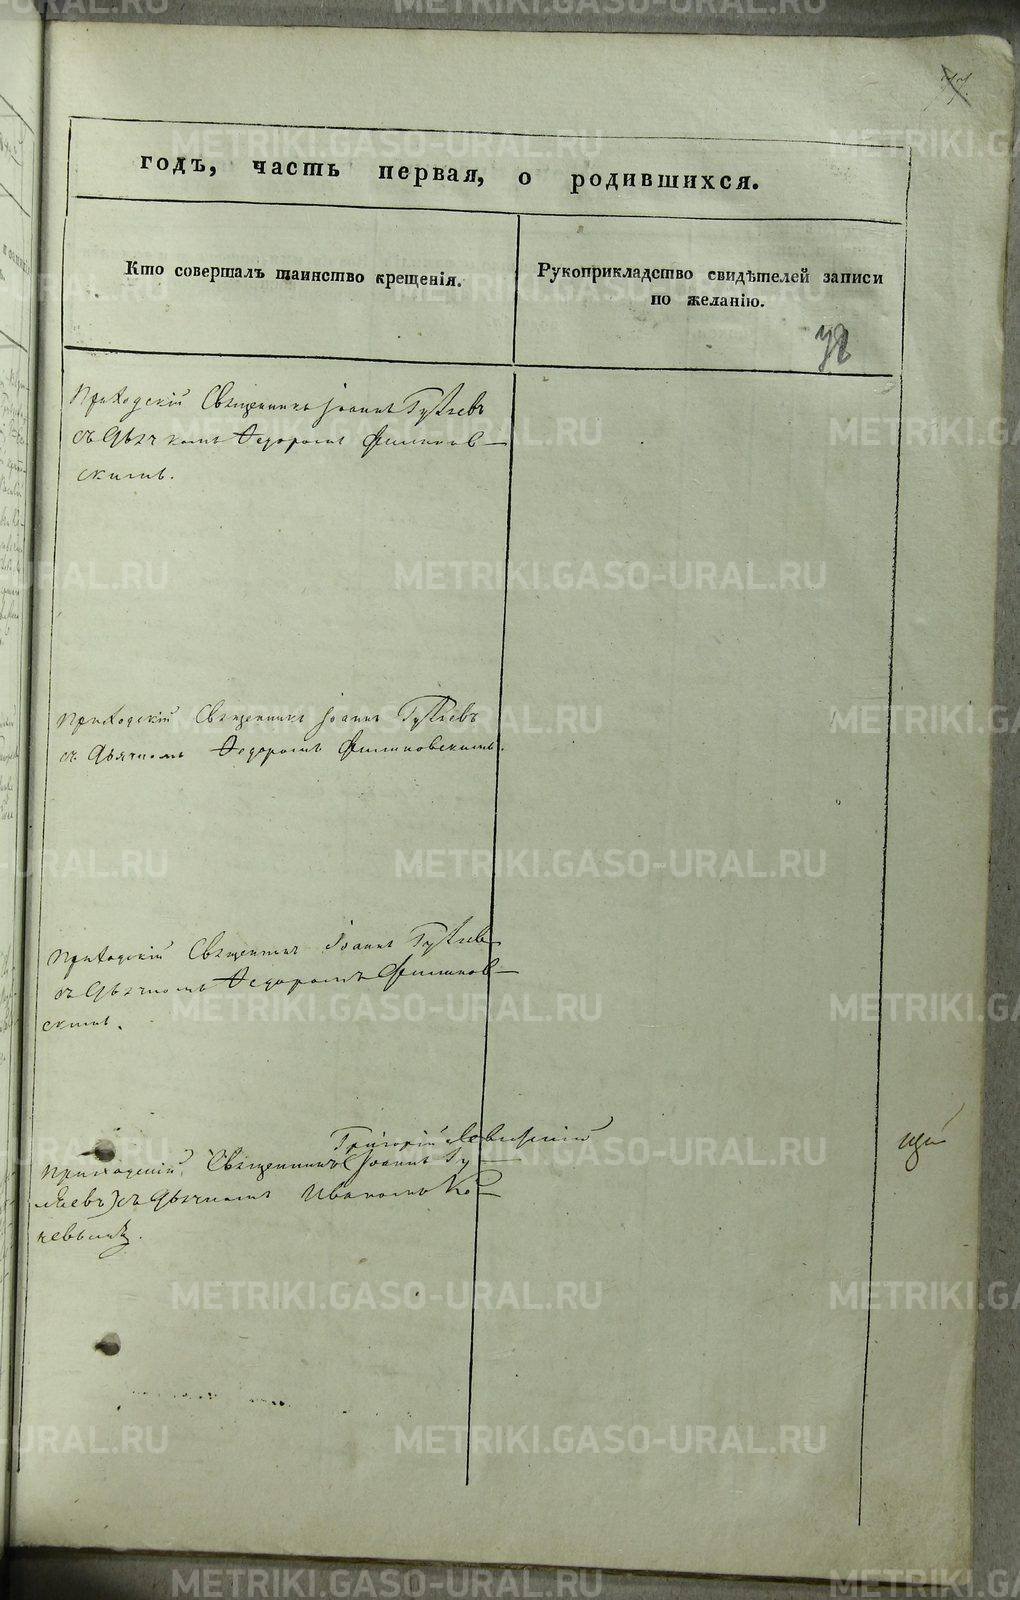 годъ, часть первая, о родившихся.
Кто совершалъ таинство крещенія.
Рукоприкладство свидѣтелей записи
по желанію.
Приходскій Священникъ Іоаннъ Гуляевъ
съ Дьячкомъ Ѳедоромъ Филиков-
скимъ.
Приходскій Священникъ Іоаннъ Гуляевъ
съ Дьячкомъ Ѳедоромъ Филиковскимъ.
Приходскій Священникъ Іоаннъ Гуляев
съ Дьячкомъ Ѳедоромъ Филиков-
скимъ.
Григорій Левитскій
Приходскій Священникъ (Іоаннъ Гу-
ляевъ) съ Дьячкомъ Иваномъ Ко-
METRIKI.GASO-URAL.RU